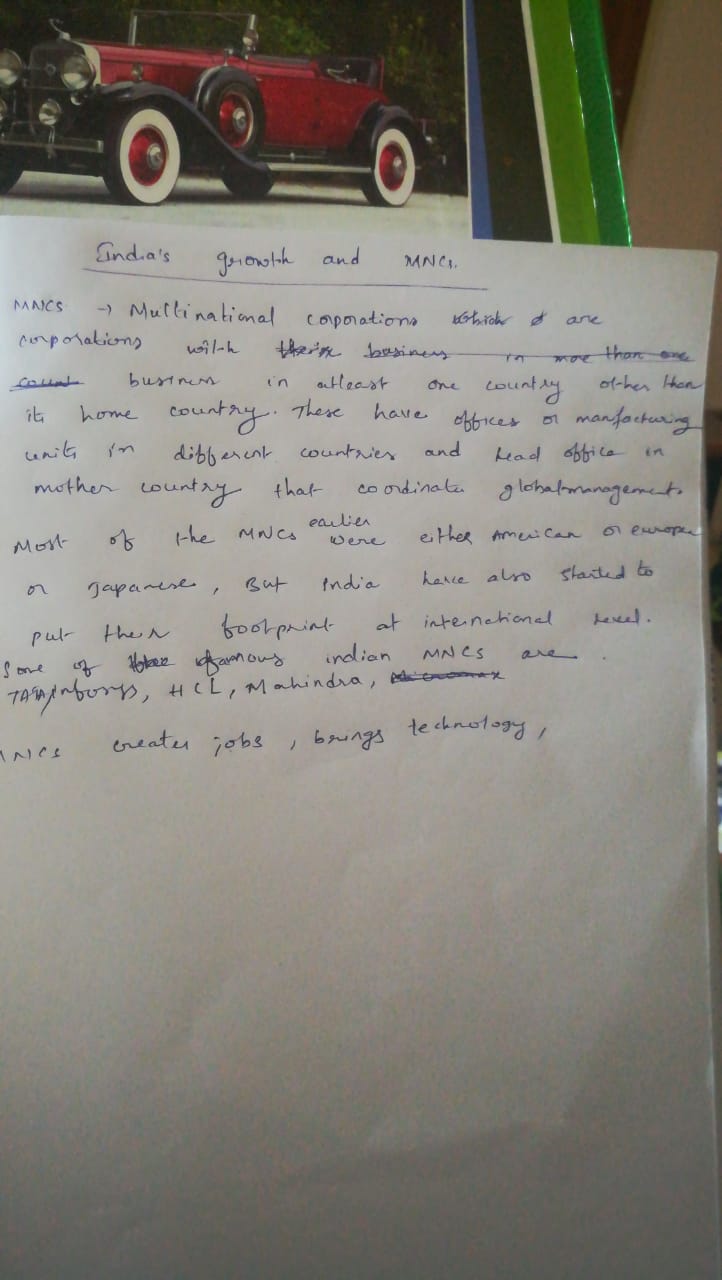 India's growth and MNCs.
MNCS → Multinational corporations which are
corporations with their business in more than one
count business in atleast one country other than
its home country. These have offices or manfacturing
units in different countries and head office in
mother country that coordinate global management.
Most of the MNCs earlier were either American or europe
or Japanese, But India have also started to
put their footprint at international level.
Some of famous indian MNCS are.
TATA, infosys, HCL, Mahindra, Micromax
MNCS creates jobs, brings technology,